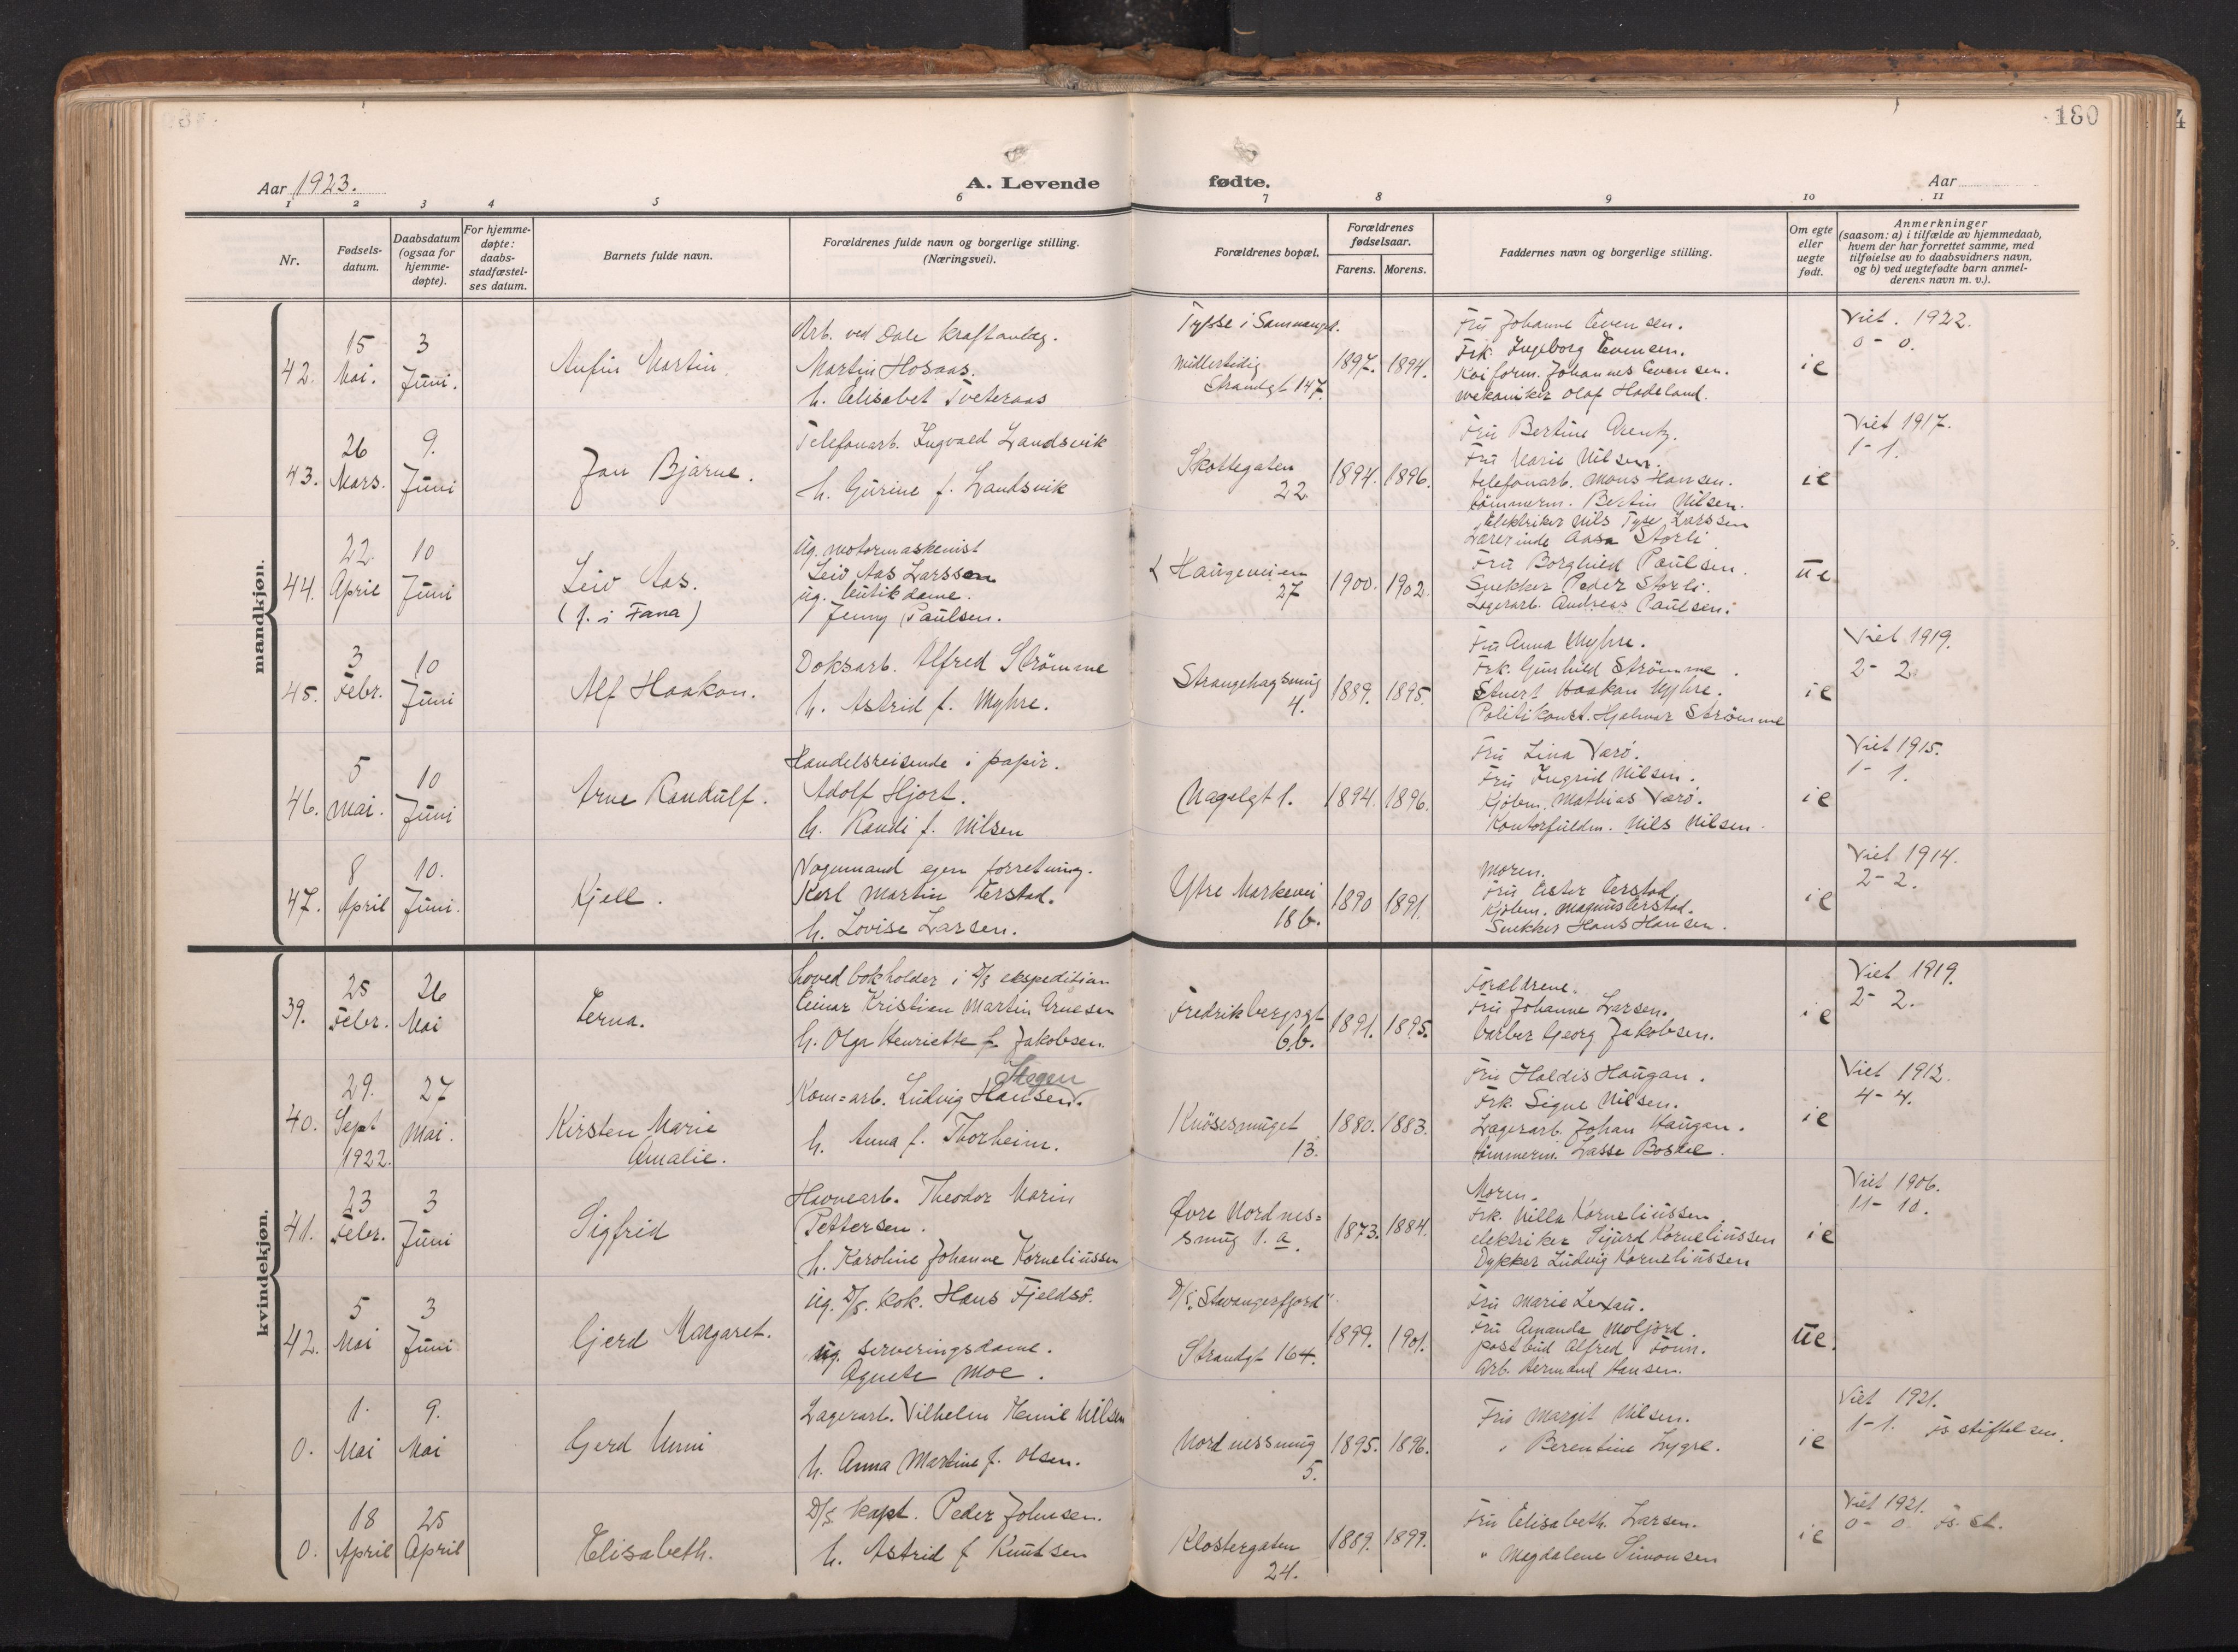 180
Aar 1923.
A. Levende
fødte.
Aar
1 2 3 4 5 6 7 8 9 10 11
Nr.
Fødsels-
datum.
Daabsdatum
(ogsaa for
hjemme-
døpte).
For hjemme-
døpte:
daabs-
stadfæstel-
ses datum.
Barnets fulde navn.
Forældrenes fulde navn og borgerlige stilling.
(Næringsvei).
Forældrenes bopæl.
Forældrenes
fødselsaar.
Farens. Morens.
Faddernes navn og borgerlig stilling.
Om egte
eller
uegte
født.
Anmerkninger
(saasom: a) i tilfælde av hjemmedaab,
hvem der har forrettet samme, med
tilføielse av to daabsvidners navn,
og b) ved uegtefødte barn anmel-
derens navn m. v.).
mandkjøn.
42.
15
Mai.
3
Juni.
Anfin Martin.
Arb. ved Dale Kraftanlæg.
Martin Hosaas.
h. Elisabet Tveteraas
Tysse i Samnanger.
midlertidig
Strandgt 147.
1897. 1894.
Fru Johanne Evensen.
Frk. Ingeborg Evensen.
Kaiform. Johannes Evensen.
mekaniker Olaf Hadeland.
ie
Viet. 1922.
0 - 0.
43.
26
Mars.
9.
Juni
Jan Bjarne.
Telefonarb. Ingvald Landsvik
h. Gurine f. Landsvik
Skottegaten
22
1894. 1896.
Fru Bertine Arentz.
Fru Marie Nilsen.
telefonarb. Mons Hansen.
tømmerm. Bertin Nilsen.
ie
Viet 1917.
1 - 1.
44.
22
April
10
Juni
Leiv Aas.
(f. i Fana)
Ug. motormaskenist
Leiv Aas Larssen
ug. butikdame.
Jenny Paulsen.
Haugeveien
27
1900. 1902.
Elektriker Nils Tyse Larssen
Lærerinde Aasa Storli
Fru Borghild Paulsen.
Snekker Peder Storli.
Lagerarb. Andreas Paulsen.
ue
45.
3
Febr.
10
Juni
Alf Haakon.
Doksarb. Alfred Strømme
h. Astrid f. Myhre.
Strangehagsmug
4.
1889. 1895.
Fru Anna Myhre.
Frk. Gunhild Strømme.
Stuert Haakon Myhre.
Politikonst. Hjalmar Strømme
ie
Viet 1919.
2 - 2
46.
5
Mai.
10
Juni
Arne Randulf.
Handelsreisende i papir.
Adolf Hjort.
h. Randi f. Nilsen
Nagelgt 1.
1894. 1896.
Fru Lina Værø.
Fru Ingrid Nilsen.
Kjøbm. Mathias Værø.
Kontorfuldm. Nils Nilsen.
ie
Viet 1915.
1 - 1.
47.
8
April
10.
Juni.
Kjell.
Vognmand egen forretning.
Karl Martin Erstad.
h. Lovise Larsen.
Ytre Markevei
18 b.
1890 1891.
Moren.
Fru Ester Erstad
Kjøbm. Magnus Erstad.
Snekker Hans Hansen.
ie
Viet 1914.
2 - 2.
kvindekjøn.
39.
25
Febr.
26
Mai
Erna.
Hovedbokholder i D/s ekspedition
Einar Kristian Martin Arnesen
h. Olga Henriette f. Jakobsen.
Fredriksbergsgt
6 b.
1891. 1895.
Forældrene.
Fru Johanne Larsen.
Barber Georg Jakobsen.
ie
Viet 1919.
2 - 2.
40.
29.
Sept
1922.
27
Mai.
Kirsten Marie
Amalie.
Kom=arb. Ludvig Hansen.
h. Anna f. Thorheim.
Knøsesmuget
13.
1880. 1883.
Fru Haldis Haugan.
Frk. Signe Nilsen.
Lagerarb. Johan Haugan.
tømmerm. Lasse
ie
Viet 1912.
4 - 4.
41.
23
Febr.
3
Juni
Sigfrid
Havnearb. Theodor Marin
Pettersen.
h. Karoline Johanne Korneliussen
Øvre Nordnes=
smug 1. a.
1873. 1884.
Moren.
Frk. Milla Korneliussen
elektriker Sigurd Korneliussen
Dykker Ludvig Korneliussen
ie
Viet 1906.
11 - 10.
42.
5
Mai
3
Juni
Gjerd Margaret.
Ug. D/s. kok. Hans Fjeldsø.
ug. serveringsdame.
Agnete Moe.
D/s "Stavangerfjord".
Strandgt 164.
1899. 1901.
Fru Marie Lexau.
Fru Amanda Moljord.
postbud Alfred Tonn.
Arb. Hermand Hansen.
ue.
0.
1.
Mai
9.
Mai
Gerd Unni
Lagerarb. Vilhelm Hemil Nilsen
h. Anna Martine f. Olsen.
Nordnessmug
5.
1895. 1896.
Fru Margit Nilsen.
" Berentine Lygre.
ie
Viet 1921.
1 - 1. Fs stiftelsen.
0.
18
April
25
April
Elisabeth.
D/s kapt. Peder Johnsen.
h. Astrid f Knutsen
Klostergaten
24.
1889. 1899.
Fru Elisabeth Larsen.
" Magdalene Simonsen
ie
Viet 1921.
0 - 0. Fs. St.